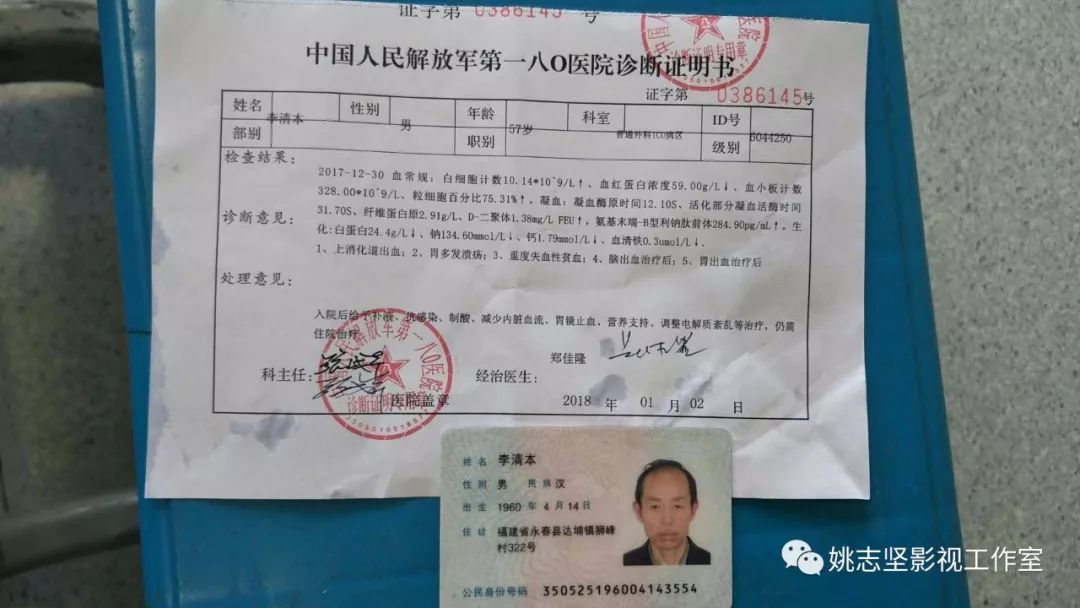 证字第 0386145 号
中国人民解放军第一八O医院诊断证明书
诊断证明专用章
证字第 0386145号
姓名 李清本 性别 男 年龄 57岁 科室 普通外科ICU病区 ID号 6044250
部别 职别 级别
检查结果:
2017-12-30 血常规: 白细胞计数10.14*10^9/L↑、血红蛋白浓度59.00g/L↓、血小板计数
328.00*10^9/L、粒细胞百分比75.31%↑。凝血: 凝血酶原时间12.10S、活化部分凝血活酶时间
诊断意见:
31.70S、纤维蛋白原2.91g/L、D-二聚体1.38mg/L FEU↑。氨基末端-B型利钠肽前体284.90pg/mL↑。生
化:白蛋白24.4g/L↓、钠134.60mmol/L↓、钙1.79mmol/L↓、血清铁0.3umol/L↓.
1、上消化道出血; 2、胃多发溃疡; 3、重度失血性贫血; 4、脑出血治疗后; 5、胃出血治疗后
处理意见:
入院后给予补液、抗感染、制酸、减少内脏血流、胃镜止血、营养支持、调整电解质紊乱等治疗, 仍需
住院治疗.
郑佳隆
科主任: 经治医生:
医院盖章
诊断证明专用章
2018 年 01 月 02 日
姓名 李清本
性别 男 民族 汉
出生 1960 年 4 月 14 日
住址 福建省永春县达埔镇狮峰
村322号
公民身份号码 350525196004143554
姚志坚影视工作室